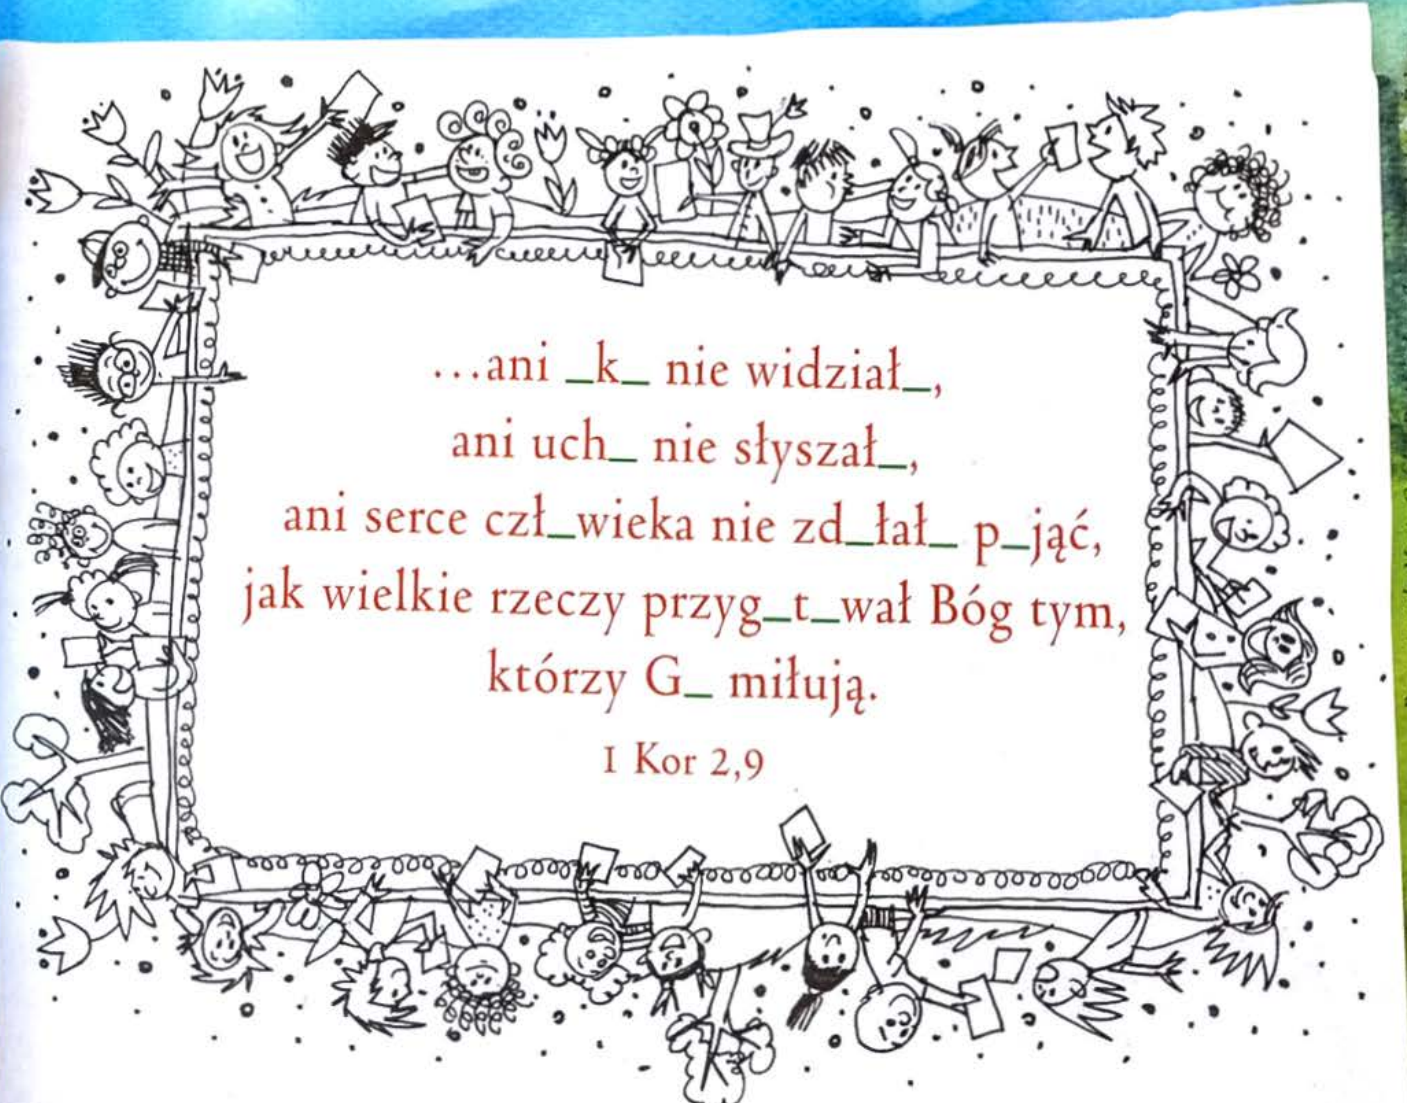 ...ani _k_ nie widział_,
ani uch_ nie słyszał_,
ani serce czł_wieka nie zd_łał_ p_jąć,
jak wielkie rzeczy przyg_t_wał Bóg tym,
którzy G_ miłują.
1 Kor 2,9